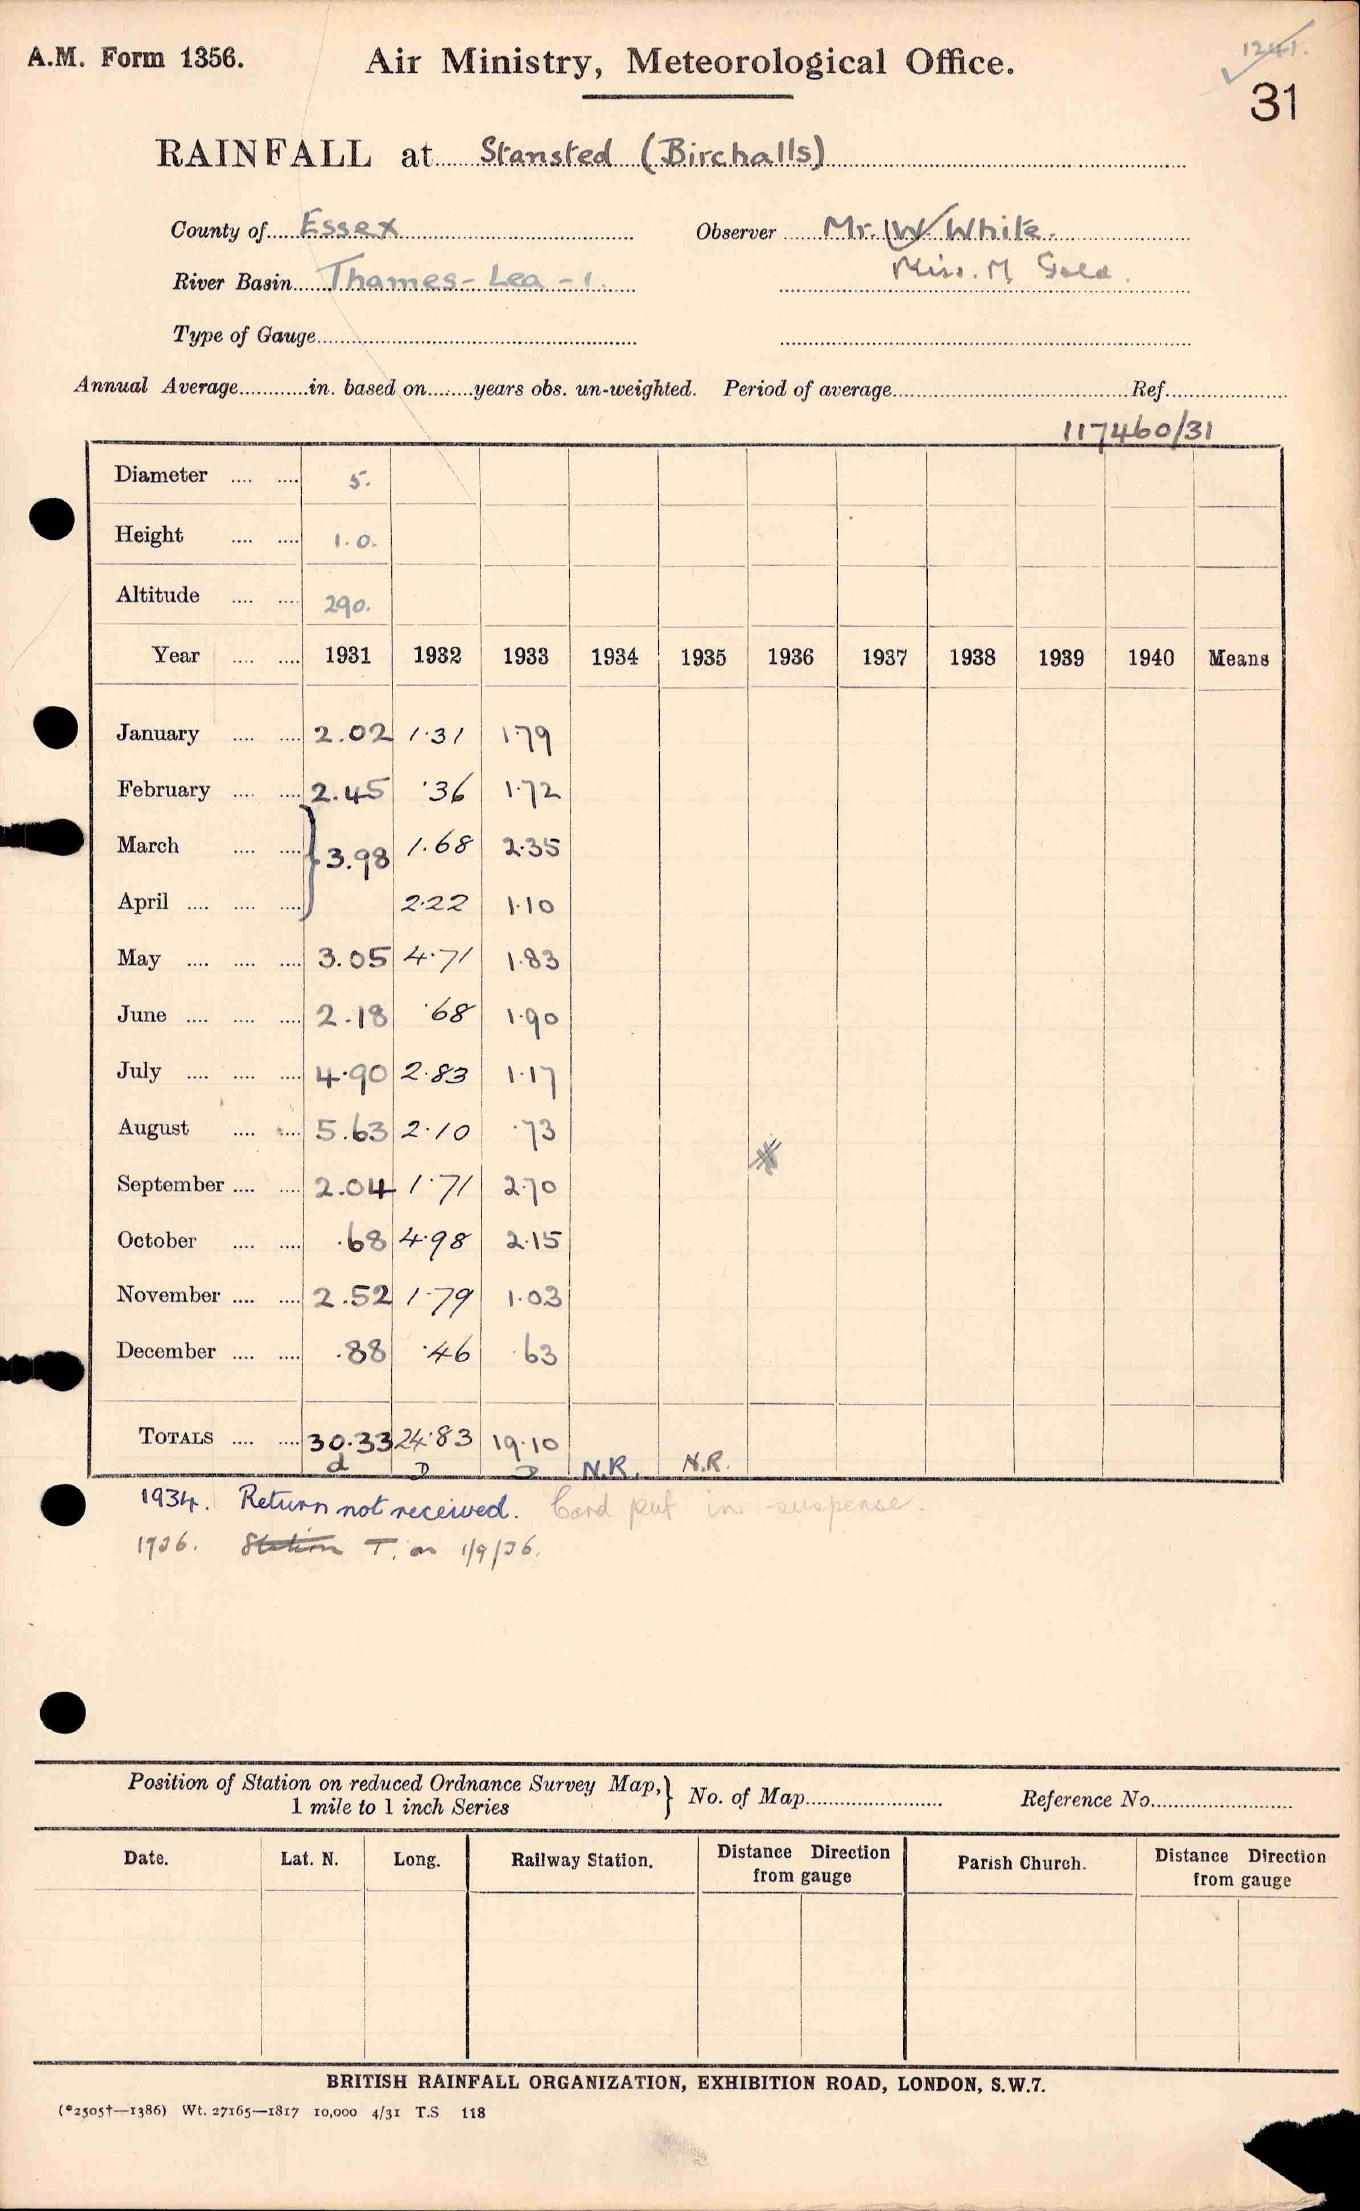 1241.
A.M. Form 1356. Air Ministry, Meteorological Office.
31
RAINFALL at Stansted (Birchalls)
County of Essex Observer Mr. W White.
River Basin Thames - Lea - 1. Miss. M Gold.
Type of Gauge
Annual Average in. based on years obs. un-weighted. Period of average Ref.
117460/31
Diameter 5.
Height 1.0.
Altitude 290.
Year 1931 1932 1933 1934 1935 1936 1937 1938 1939 1940 Means
January 2.02 1.31 1.79
February 2.45 .36 1.72
March } 3.98 1.68 2.35
April 2.22 1.10
May 3.05 4.71 1.83
June 2.18 .68 1.90
July 4.90 2.83 1.17
August 5.63 2.10 .73
September 2.04 1.71 2.70
October .68 4.98 2.15
November 2.52 1.79 1.03
December .88 .46 .63
TOTALS 30.33 24.83 19.10
d D D N.R. N.R.
1934. Return not received. Card put in suspense.
1936. Station T. on 1/9/36.
Position of Station on reduced Ordnance Survey Map, } No. of Map Reference No.
1 mile to 1 inch Series
Date. Lat. N. Long. Railway Station. Distance Direction from gauge Parish Church. Distance Direction from gauge
BRITISH RAINFALL ORGANIZATION, EXHIBITION ROAD, LONDON, S.W.7.
(*2505†—1386) Wt. 27165—1817 10,000 4/31 T.S 118